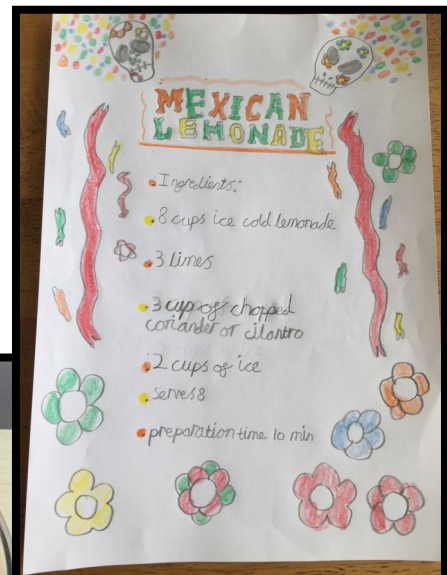 MEXICAN
LEMONADE
Ingredients:
8 cups ice cold lemonade
3 limes
3 cup of chopped
coriander or cilantro
2 cups of ice
serves 8
preparation time 10 min